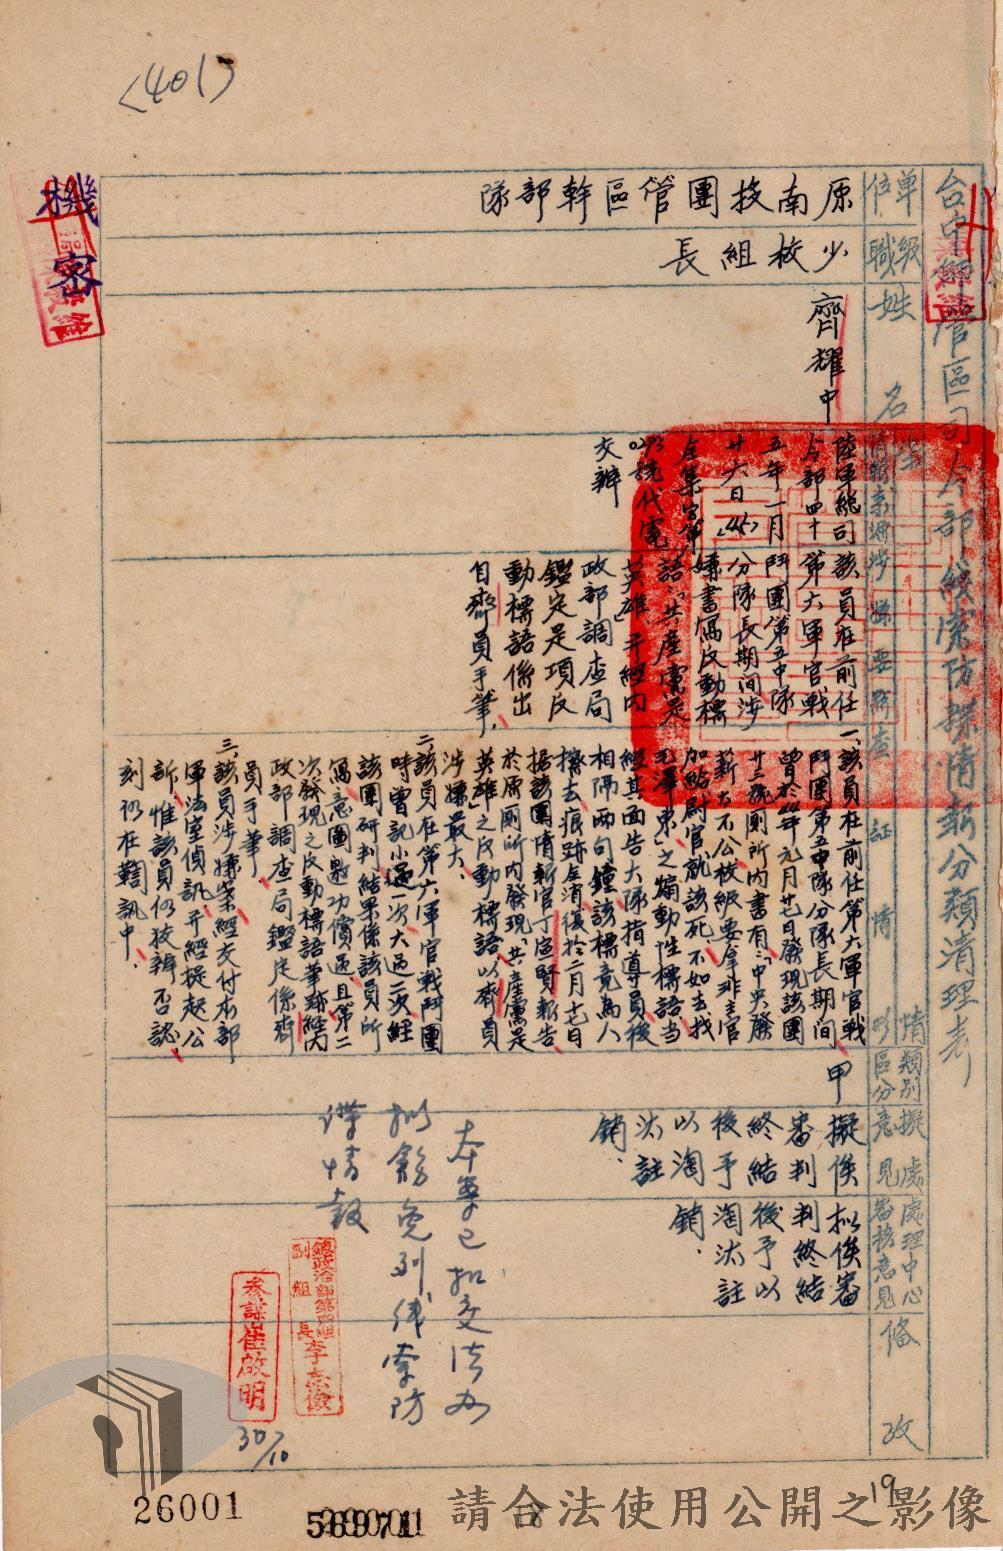 <401>
機密
台中師管區司令部線索防諜情報分類清理表
單位
級職
姓名
類別區分
擬處意見
處理中心審核意見
備攷
原南投團管區幹部隊
少校組長
齊耀中
陸軍總司
令部四十
五年一月
廿六日(45)
仝集字第
0293號代電
交辦
該員在前任
第六軍官戰
鬥團第五中隊
分隊長期間涉
嫌書寫反動標
語「共產黨是
英雄」并經內
政部調查局
鑑定是項反
動標語係出
自齊員手筆,
一、該員在前任第六軍官戰
鬥團第五中隊分隊長期間
曾於44年元月廿七日發現該團
廿三號厠所內書有:「中央發
薪太不公校級要拿非主官
加給尉官就該死,不如去找
毛澤東」之煽動性標語當
經其面告大隊指導員後
相隔兩句鐘該標竟為人
擦去痕跡全消復於二月十七日
据該團情報官丁道賢報告
於原厠所內發現「共產黨是
英雄」之反動標語以齊員
涉嫌最大、
二、該員在第六軍官戰鬥團
時曾記小過一次大過二次經
該團研判結果係該員所
寫意圖邀功償過且第二
次發現之反動標語筆跡經內
政部調查局鑑定係齊
員手筆、
三、該員涉嫌案經交付本部
軍法室偵訊并經提起公
訴,惟該員仍狡辯否認、
刻仍在羈訊中.
甲
擬俟
審判
終結
後予
以淘
汰註
銷、
拟俟審
判終結
後予以
淘汰註
銷.
本案已扣交法办
拟飭免列線索防
諜情報
總政治部第四組
副組長李
參謀崔啟明
30/10
19
26001
請合法使用公開之影像